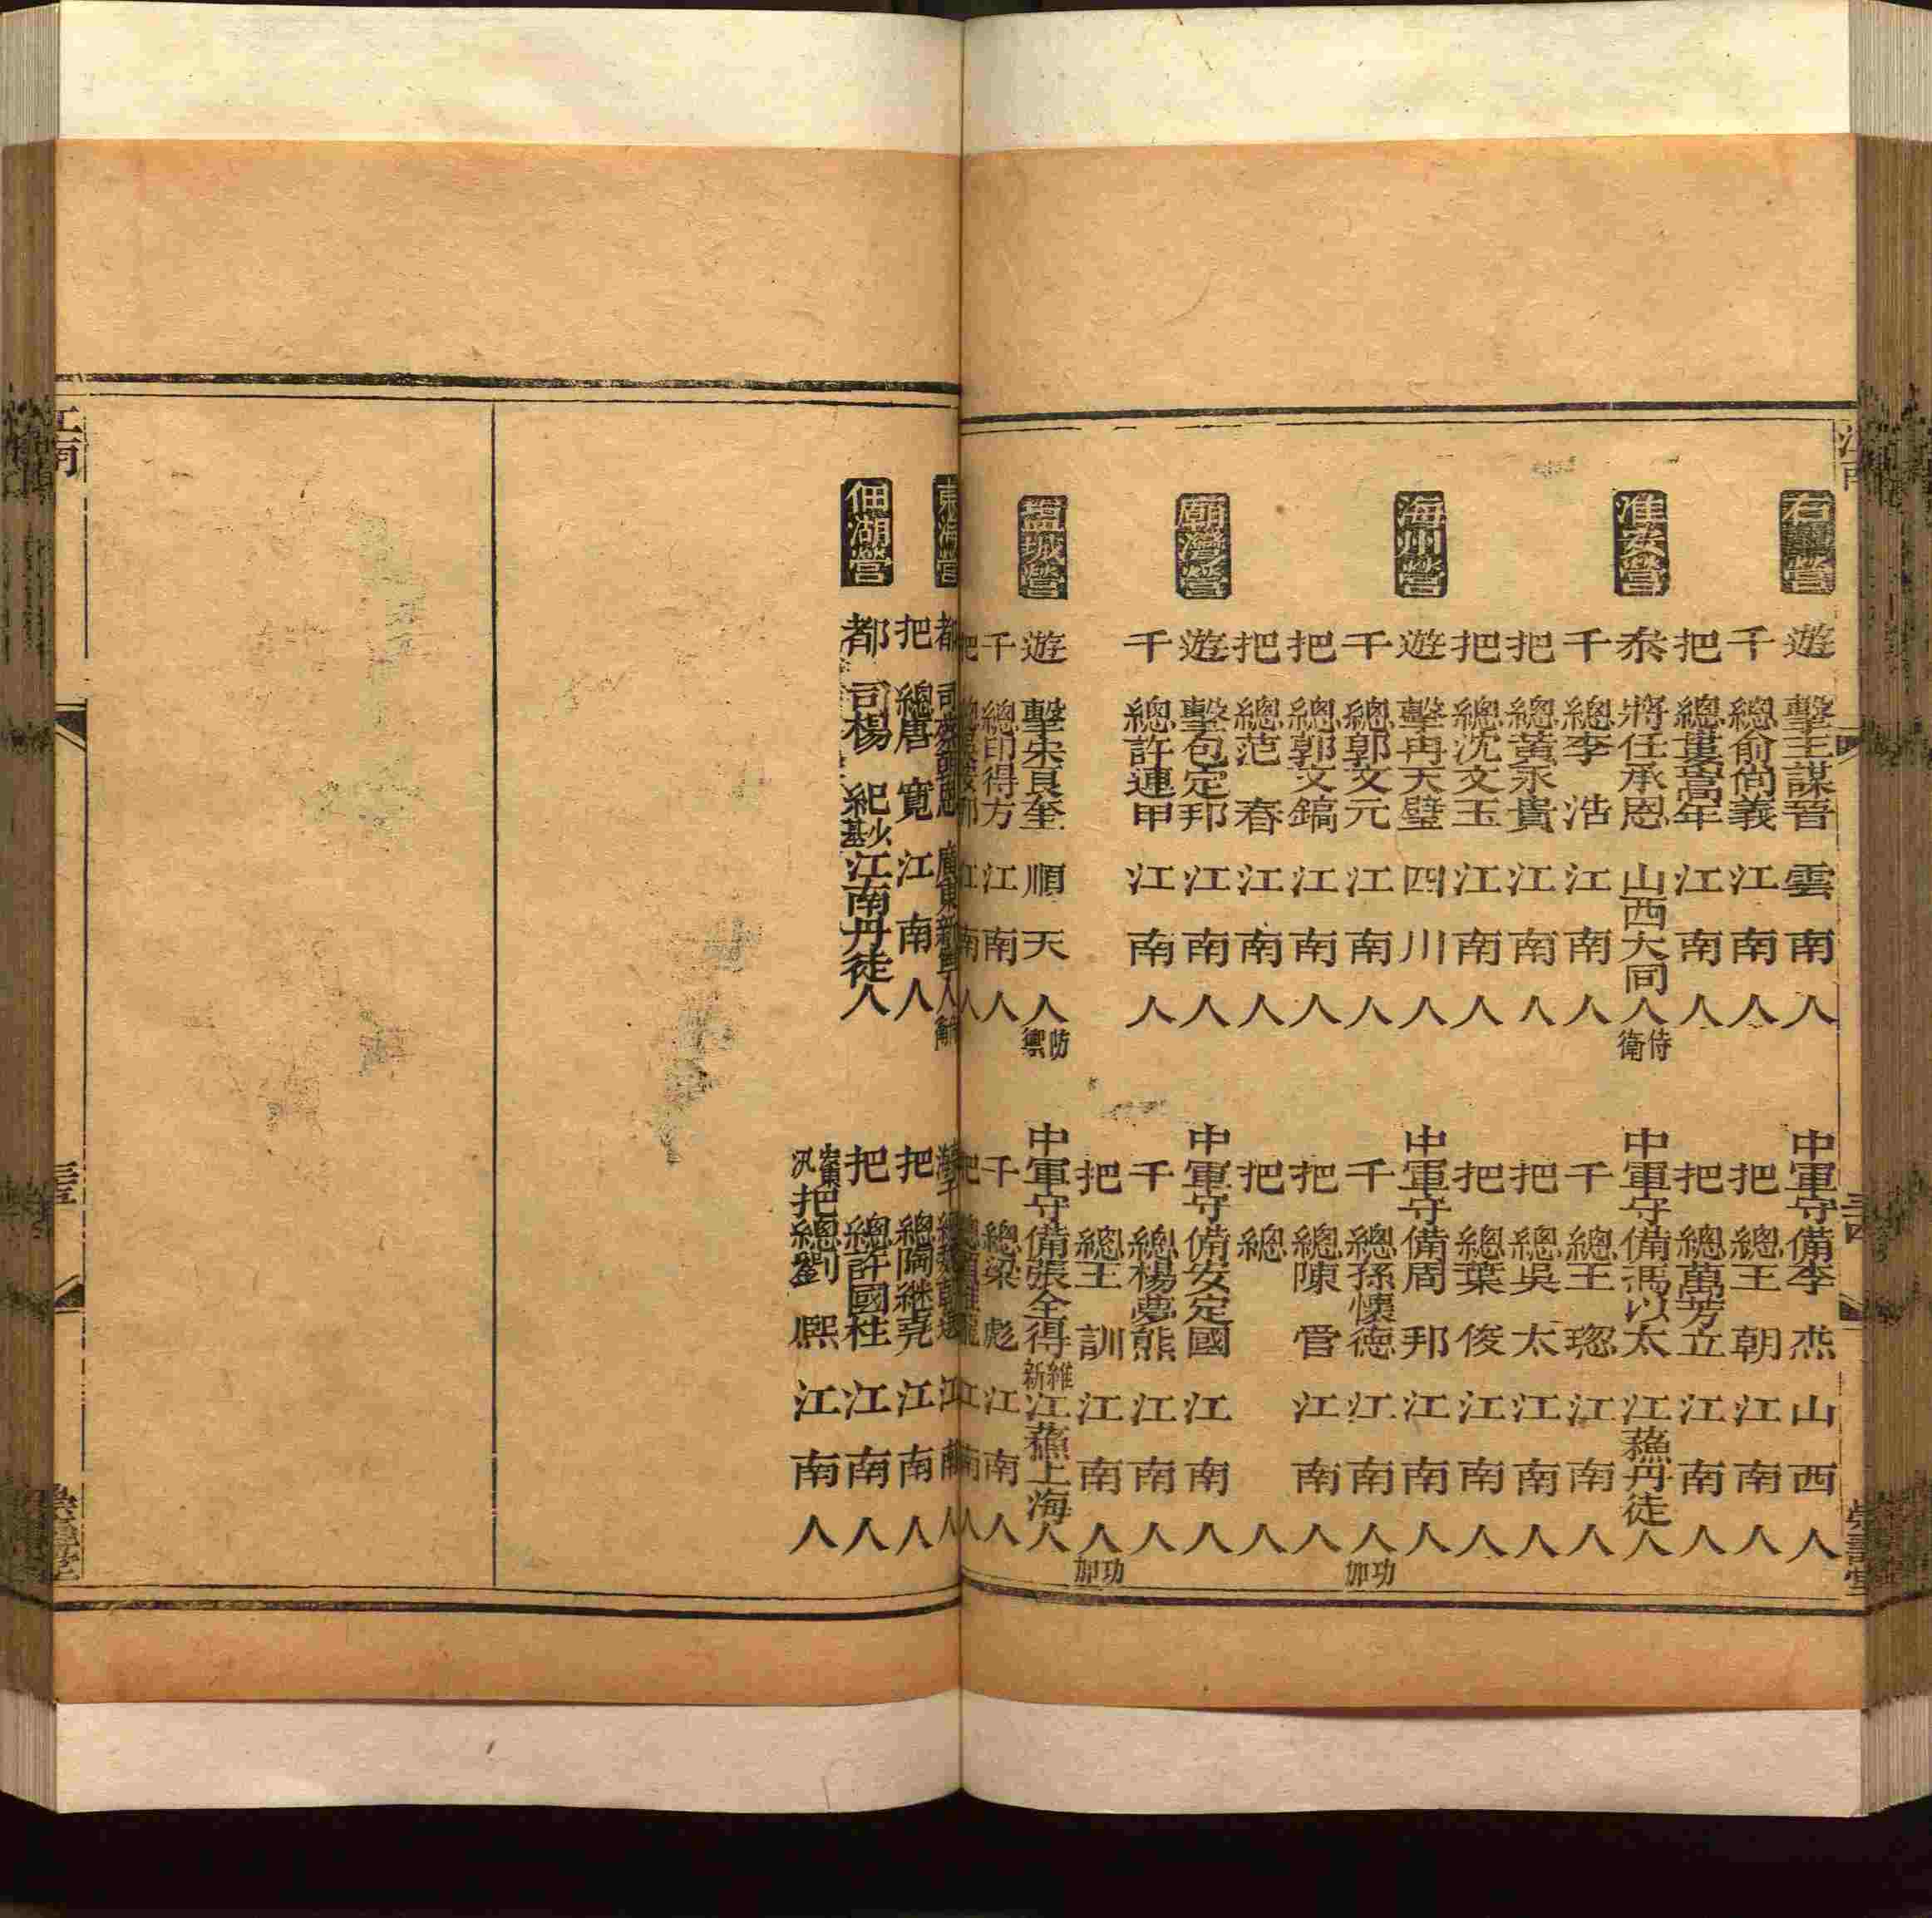 江南
右營
遊擊王謀晉 雲南人
中軍守備李杰 山西人
千總俞尚義 江南人
把總王朝 江南人
把總婁萬年 江南人
把總萬芳立 江南人
淮安營
叅將任承恩 山西大同人 侍衛
中軍守備馮以太 江蘓丹徒人
千總李浩 江南人
千總王璁 江南人
把總黃永貴 江南人
把總吳太 江南人
把總沈文玉 江南人
把總葉俊 江南人
海州營
遊擊冉天璧 四川人
中軍守備周邦 江南人
千總郭文元 江南人
千總孫懷德 江南人 功加
把總郭文鎬 江南人
把總陳管 江南人
把總范春 江南人
把總 人
廟灣營
遊擊包定邦 江南人
中軍守備安定國 江南人
千總許連甲 江南人
千總楊夢熊 江南人
把總王訓 江南人 功加
塩城營
遊擊宋良奎 順天人 防禦
中軍守備張全得 維新 江蘓上海人
千總印得方 江南人
千總梁彪 江南人
把總 江南人
把總 江南人
三四
東海營
都司 廣東新 人
江南人
把總唐寬 江南人
把總陶継堯 江南人
佃湖營
都司楊紀 江南丹徒人
把總許國柱 江南人
汛把總劉熙 江南人
江南
三五